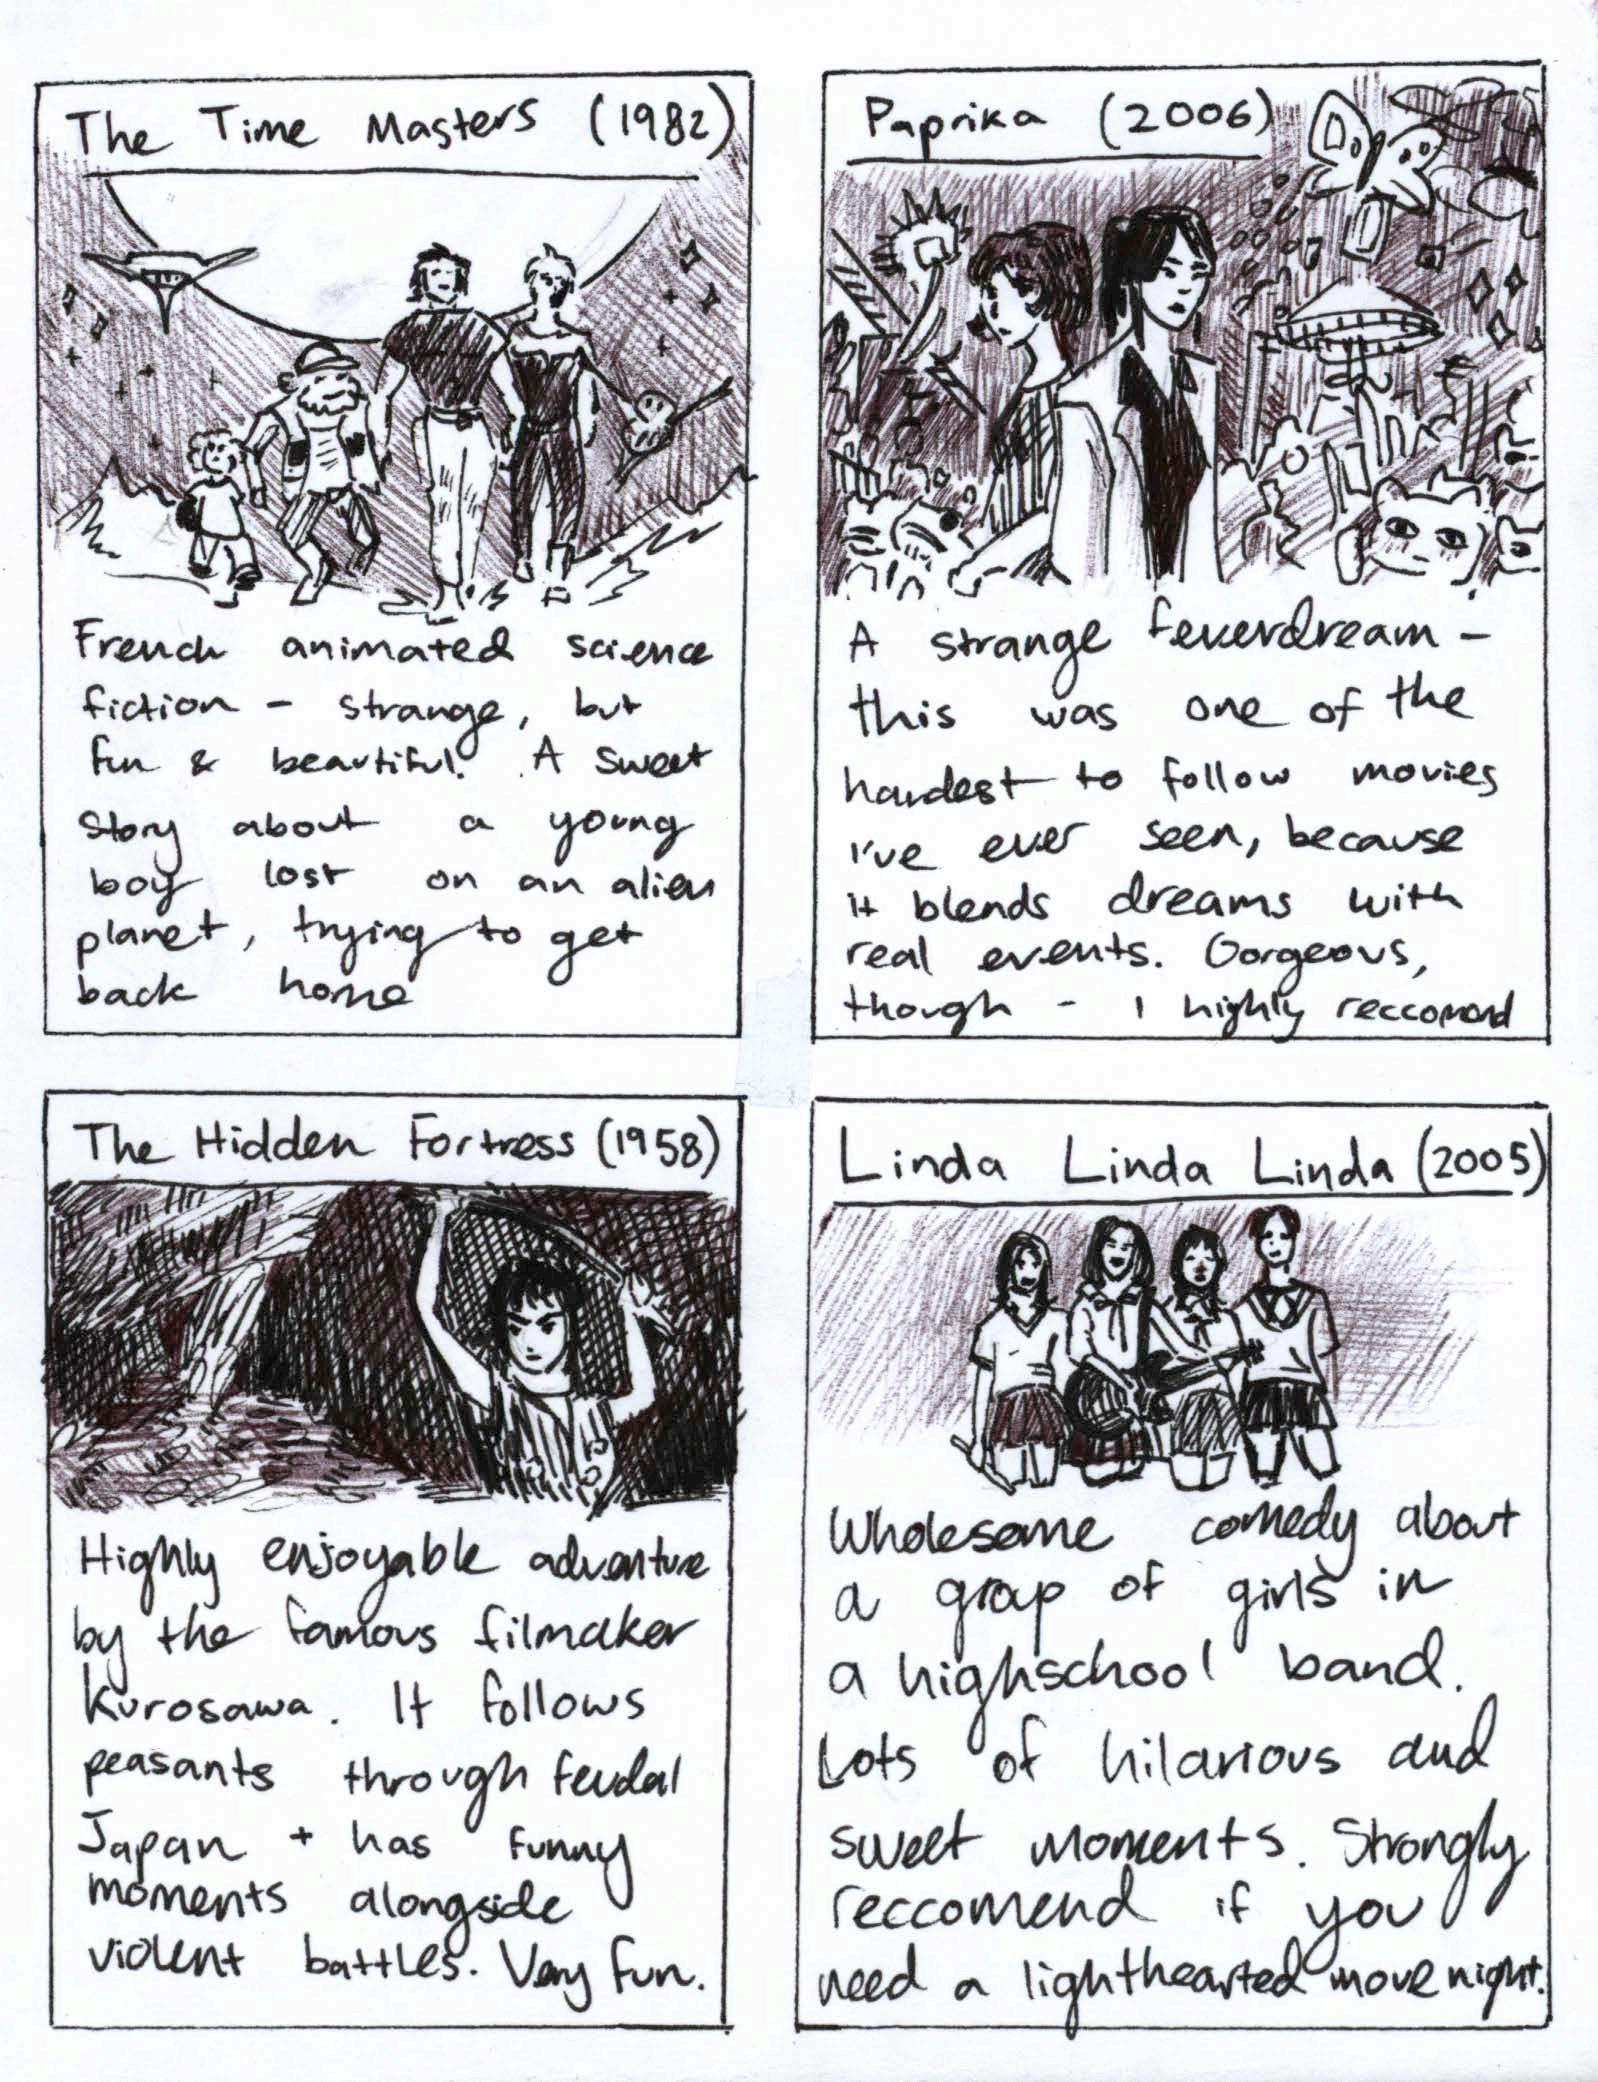 The Time Masters (1982)
French animated science
fiction - strange, but
fun & beautiful. A sweet
story about a young
boy lost on an alien
planet, trying to get
back home
Paprika (2006)
A strange feverdream -
this was one of the
hardest to follow movies
I've ever seen, because
it blends dreams with
real events. Gorgeous,
though - I highly reccomend
The Hidden Fortress (1958)
Highly enjoyable adventure
by the famous filmaker
Kurosawa. It follows
peasants through feudal
Japan + has funny
moments alongside
violent battles. Very fun.
Linda Linda Linda (2005)
Wholesome comedy about
a group of girls in
a highschool band.
Lots of hilarious and
sweet moments. Strongly
reccomend if you
need a lighthearted move night.